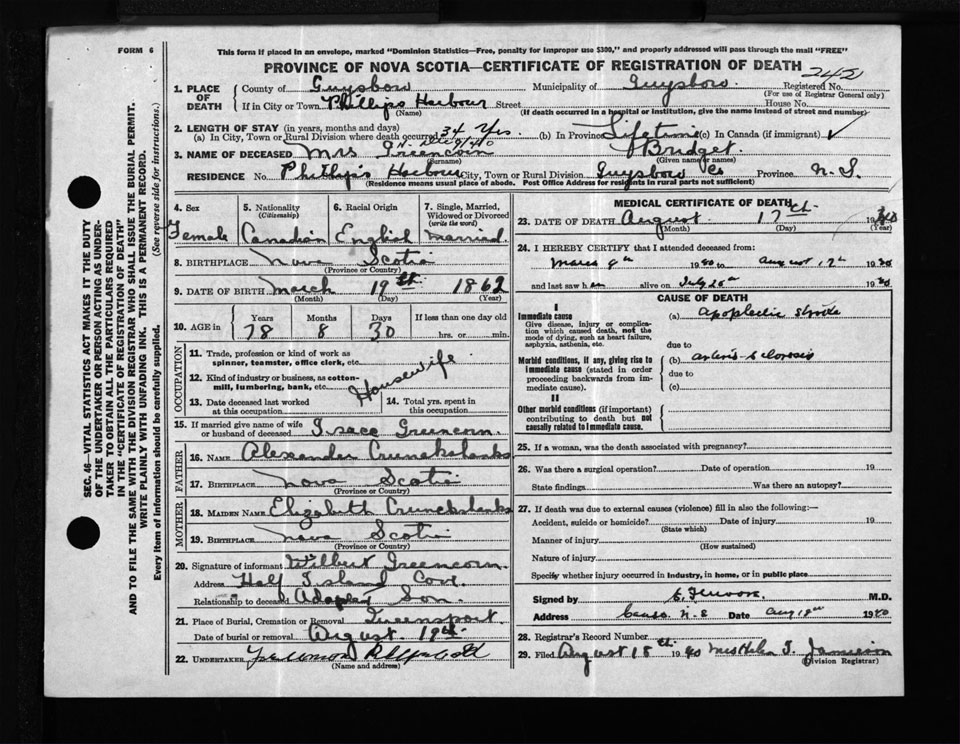 FORM 6
This form if placed in an envelope, marked "Dominion Statistics—Free, penalty for improper use $300," and properly addressed will pass through the mail "FREE"
PROVINCE OF NOVA SCOTIA—CERTIFICATE OF REGISTRATION OF DEATH
242
1. PLACE OF DEATH
County of Guysboro Municipality of Guysboro. Registered No.
(For use of Registrar General only)
If in City or Town Phillips Harbour Street House No.
(Name) (If death occurred in a hospital or institution, give the name instead of street and number)
2. LENGTH OF STAY (in years, months and days)
(a) In City, Town or Rural Division where death occurred 34 Yrs. (b) In Province Lifetime (c) In Canada (if immigrant) ✓
3. NAME OF DECEASED Mrs Greencorn Bridget.
(Surname) (Given name or names)
RESIDENCE No. Phillips Harbour City, Town or Rural Division Guysboro Co Province N. S.
(Residence means usual place of abode. Post Office Address for residents in rural parts not sufficient)
4. Sex 5. Nationality (Citizenship) 6. Racial Origin 7. Single, Married, Widowed or Divorced (write the word)
Female Canadian English Married.
8. BIRTHPLACE Nova Scotia
(Province or Country)
9. DATE OF BIRTH March 19th 1862
(Month) (Day) (Year)
10. AGE in Years Months Days If less than one day old
78 8 30 hrs. or min.
OCCUPATION
11. Trade, profession or kind of work as spinner, teamster, office clerk, etc.
12. Kind of industry or business, as cotton-mill, lumbering, bank, etc.
Housewife
13. Date deceased last worked at this occupation 14. Total yrs. spent in this occupation
15. If married give name of wife or husband of deceased Isacc Greencorn.
FATHER
16. NAME Alexander Crunckshanks
17. BIRTHPLACE Nova Scotia
(Province or Country)
MOTHER
18. MAIDEN NAME Elizabeth Crunckshanks
19. BIRTHPLACE Nova Scotia
(Province or Country)
20. Signature of informant Wilbert Greencorn.
Address Half Island Cove.
Relationship to deceased Adopted Son.
21. Place of Burial, Cremation or Removal Queensport.
Date of burial or removal August 19th
22. UNDERTAKER
(Name and address)
MEDICAL CERTIFICATE OF DEATH
23. DATE OF DEATH August 17th 1940
(Month) (Day) (Year)
24. I HEREBY CERTIFY that I attended deceased from:
March 9th 1940 to August 17th 1940
and last saw her alive on July 25th 1940
CAUSE OF DEATH
I
Immediate cause
Give disease, injury or complication which caused death, not the mode of dying, such as heart failure, asphyxia, asthenia, etc.
(a) Apoplectic stroke
due to
Morbid conditions, if any, giving rise to immediate cause (stated in order proceeding backwards from immediate cause).
(b) arterio-sclerosis
due to
(c)
II
Other morbid conditions (if important) contributing to death but not causally related to immediate cause.
25. If a woman, was the death associated with pregnancy?
26. Was there a surgical operation? Date of operation 19
State findings Was there an autopsy?
27. If death was due to external causes (violence) fill in also the following:—
Accident, suicide or homicide? Date of injury 19
(State which)
Manner of injury
(How sustained)
Nature of injury
Specify whether injury occurred in industry, in home, or in public place
Signed by M.D.
Address Canso N. S Date Aug 18th 1940
28. Registrar's Record Number
29. Filed August 18th 1940 Mrs Helen T. Jamieson
(Division Registrar)
SEC. 46—VITAL STATISTICS ACT MAKES IT THE DUTY
OF THE UNDERTAKER OR PERSON ACTING AS UNDER-
TAKER TO OBTAIN ALL THE PARTICULARS REQUIRED
IN THE "CERTIFICATE OF REGISTRATION OF DEATH"
AND TO FILE THE SAME WITH THE DIVISION REGISTRAR WHO SHALL ISSUE THE BURIAL PERMIT.
WRITE PLAINLY WITH UNFADING INK. THIS IS A PERMANENT RECORD.
Every item of information should be carefully supplied. (See reverse side for instructions.)